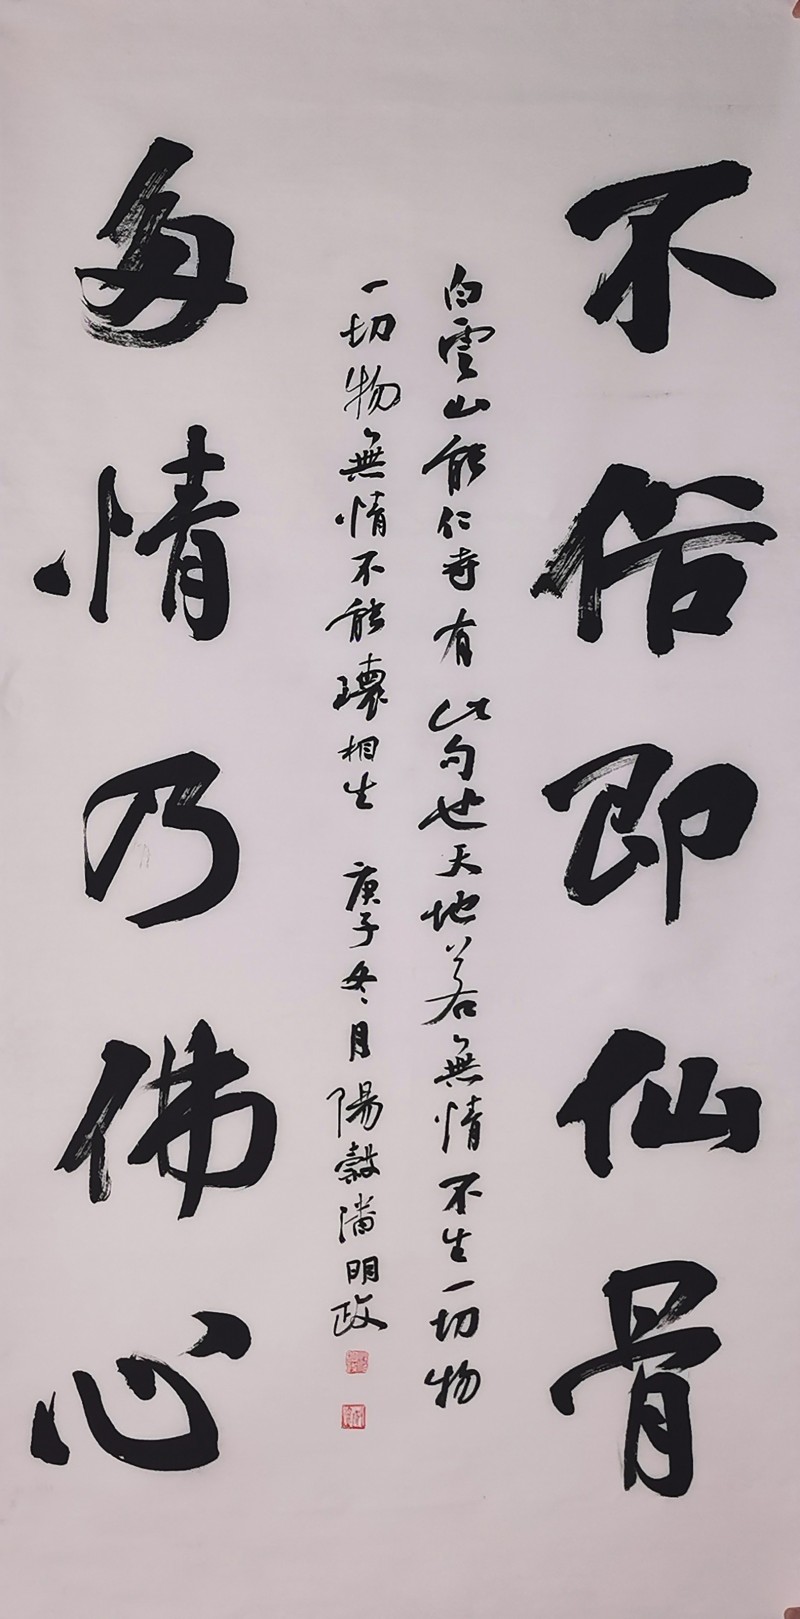 不俗即仙骨
白雲山能仁寺有此句也天地若無情不生一切物
一切物無情不能環相生 庚子冬月陽穀潘明政
多情乃佛心